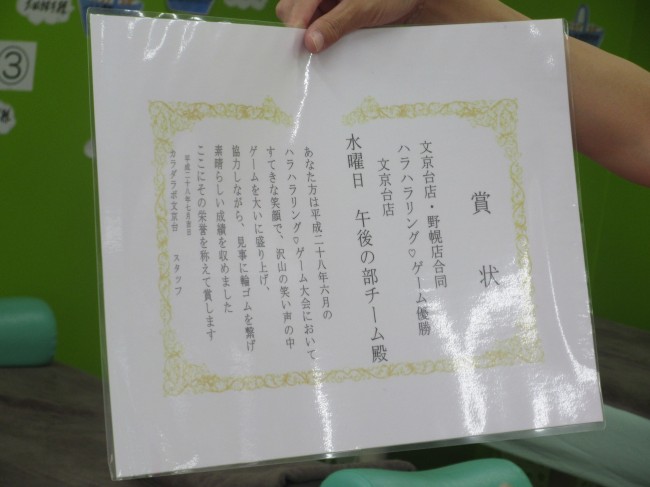 賞状
文京台店・野幌店合同
ハラハラリング♡ゲーム優勝
文京台店
水曜日 午後の部チーム殿
あなた方は平成二十八年六月の
ハラハラリング♡ゲーム大会において
すてきな笑顔で、沢山の笑い声の中
ゲームを大いに盛り上げ、
協力しながら、見事に輪ゴムを繋げ
素晴らしい成績を収めました
ここにその栄誉を称えて賞します
平成二十八年七月吉日
カラダラボ文京台 スタッフ
③